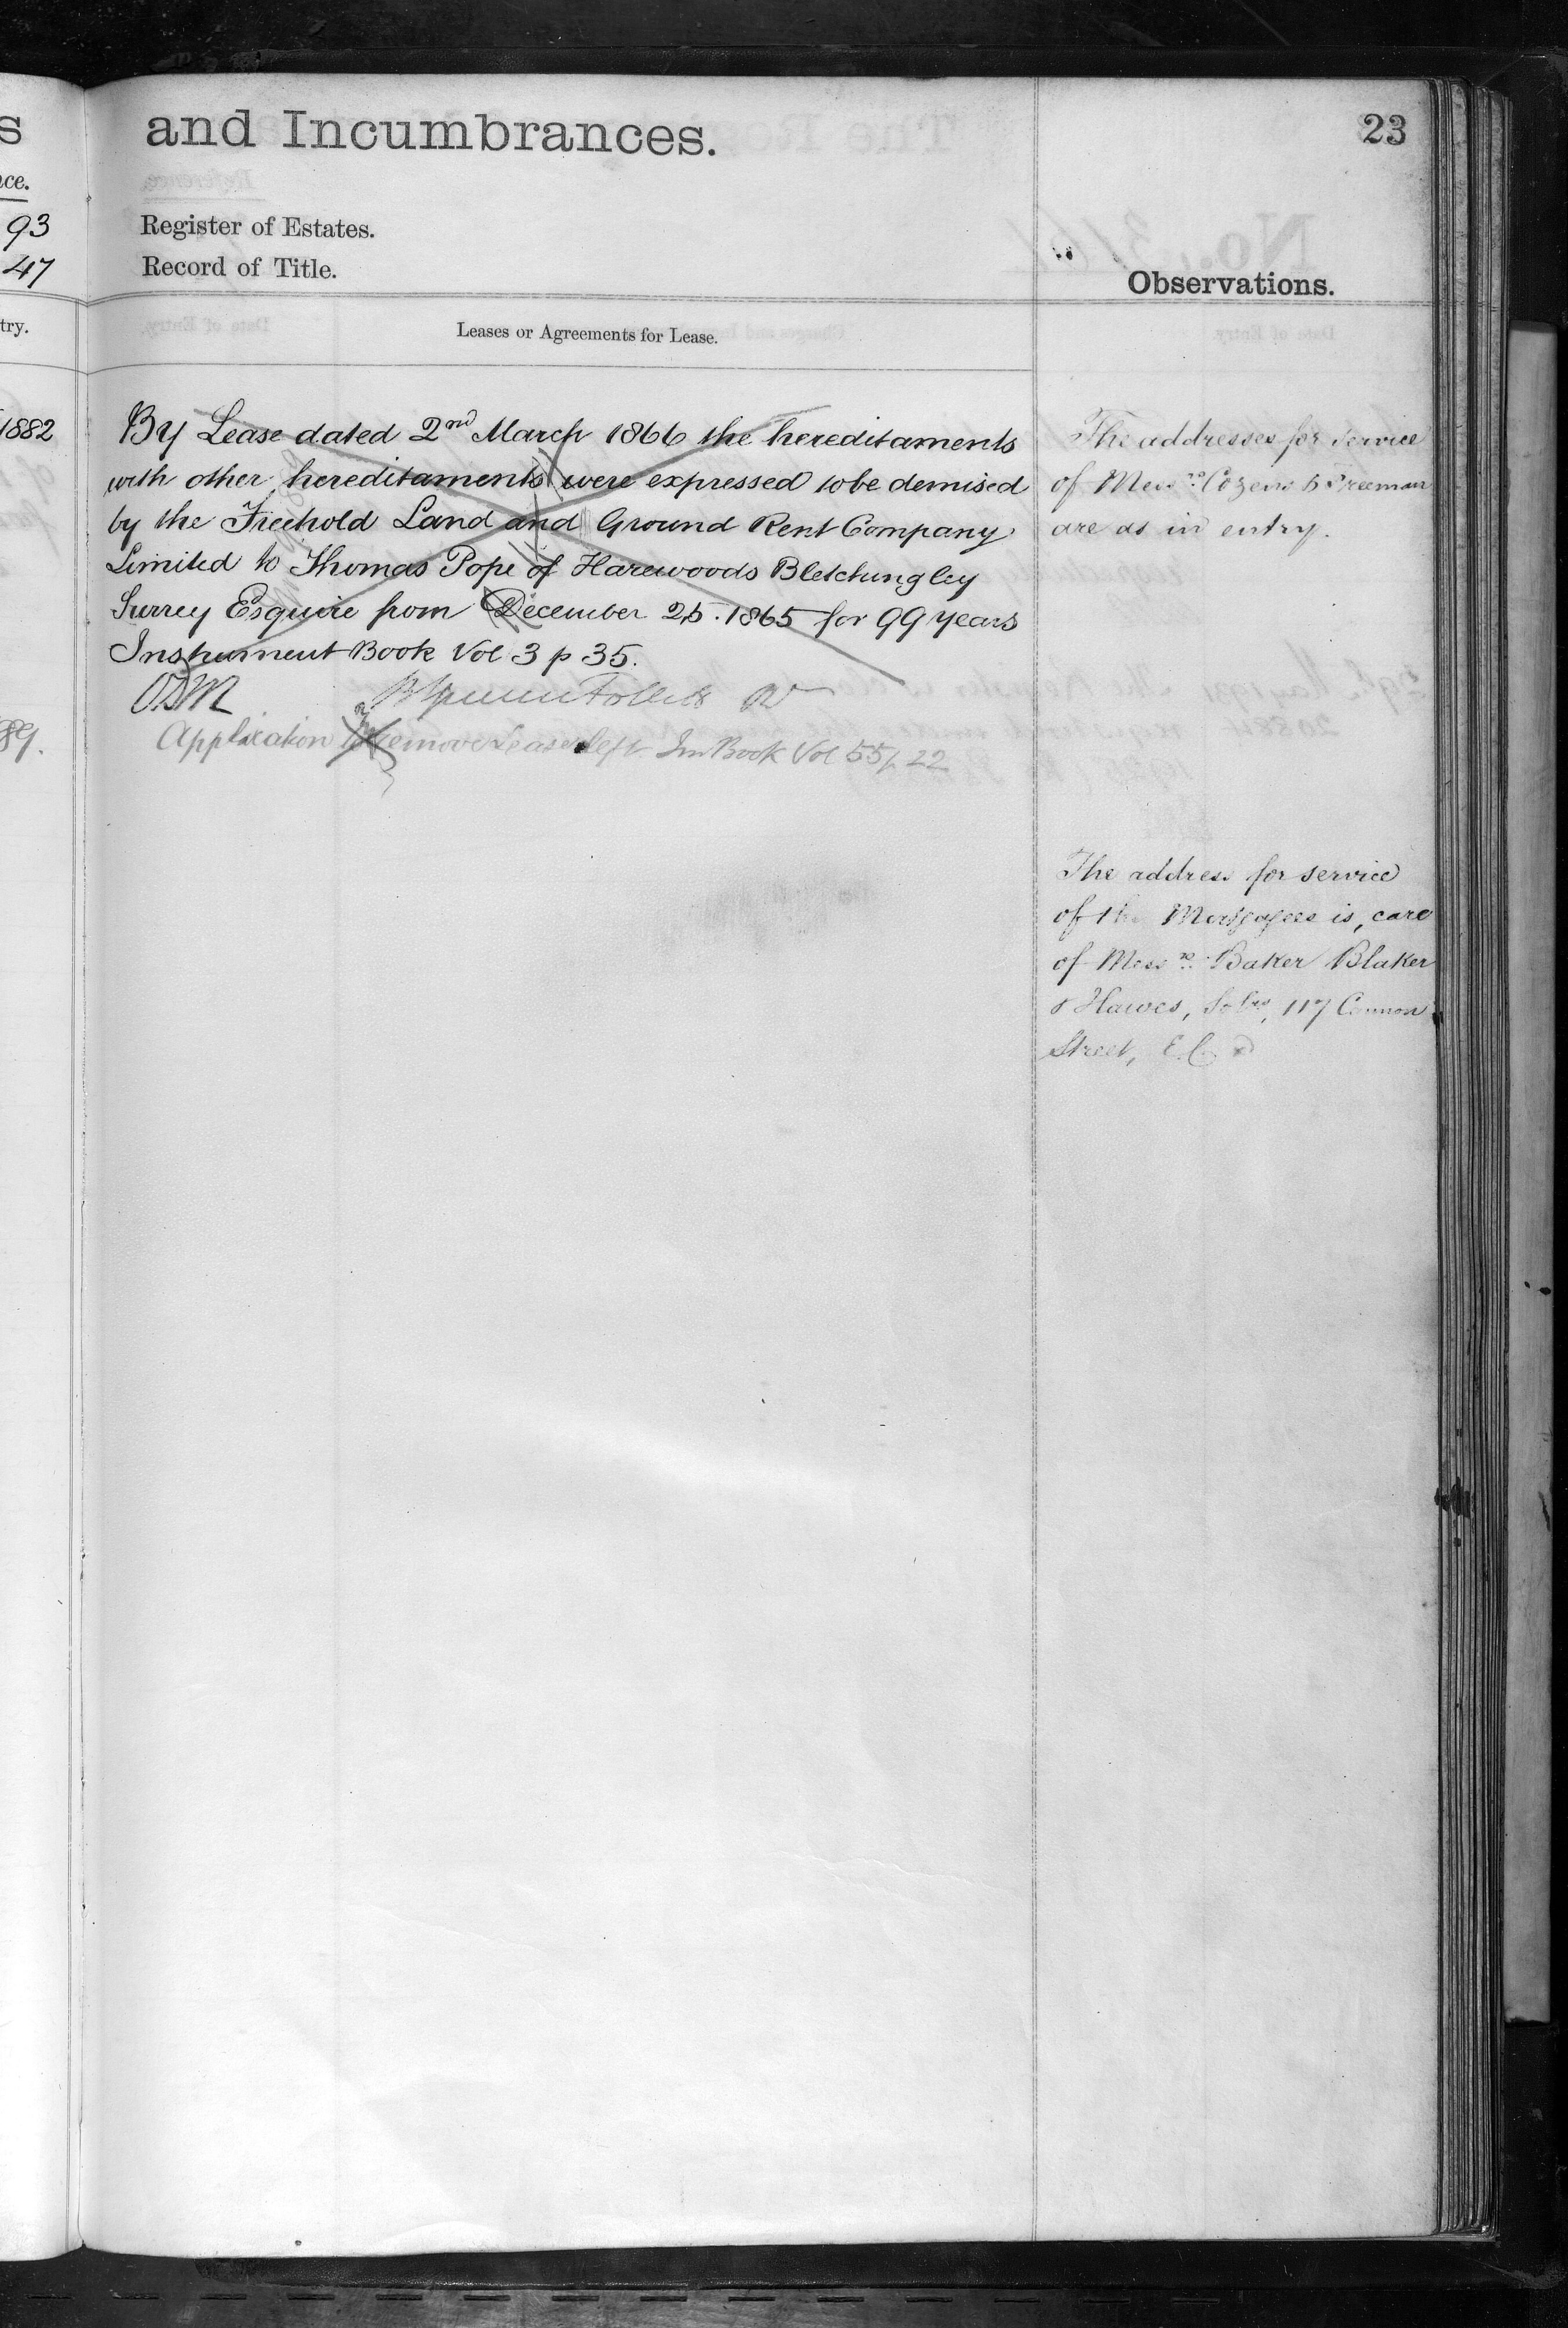 and Incumbrances.
23
s
ce.
93
47
try.
1882
89.
Register of Estates.
Record of Title.
Observations.
Leases or Agreements for Lease.
By Lease dated 2nd March 1866 the hereditaments
with other hereditaments were expressed to be demised
by the Freehold Land and Ground Rent Company
Limited to Thomas Pope of Harewoods Bletchingley
Surrey Esquire from December 25. 1865 for 99 years
Instrument Book Vol 3 p 35.
Application to remove Lease left Ins Book Vol 55 p 22
The addresses for service
of Messrs Cozens & Freeman
are as in entry.
The address for service
of the Mortgagees is, care
of Messrs Baker Blaker
& Hawes, Solrs, 117 Cannon
Street, E.C.